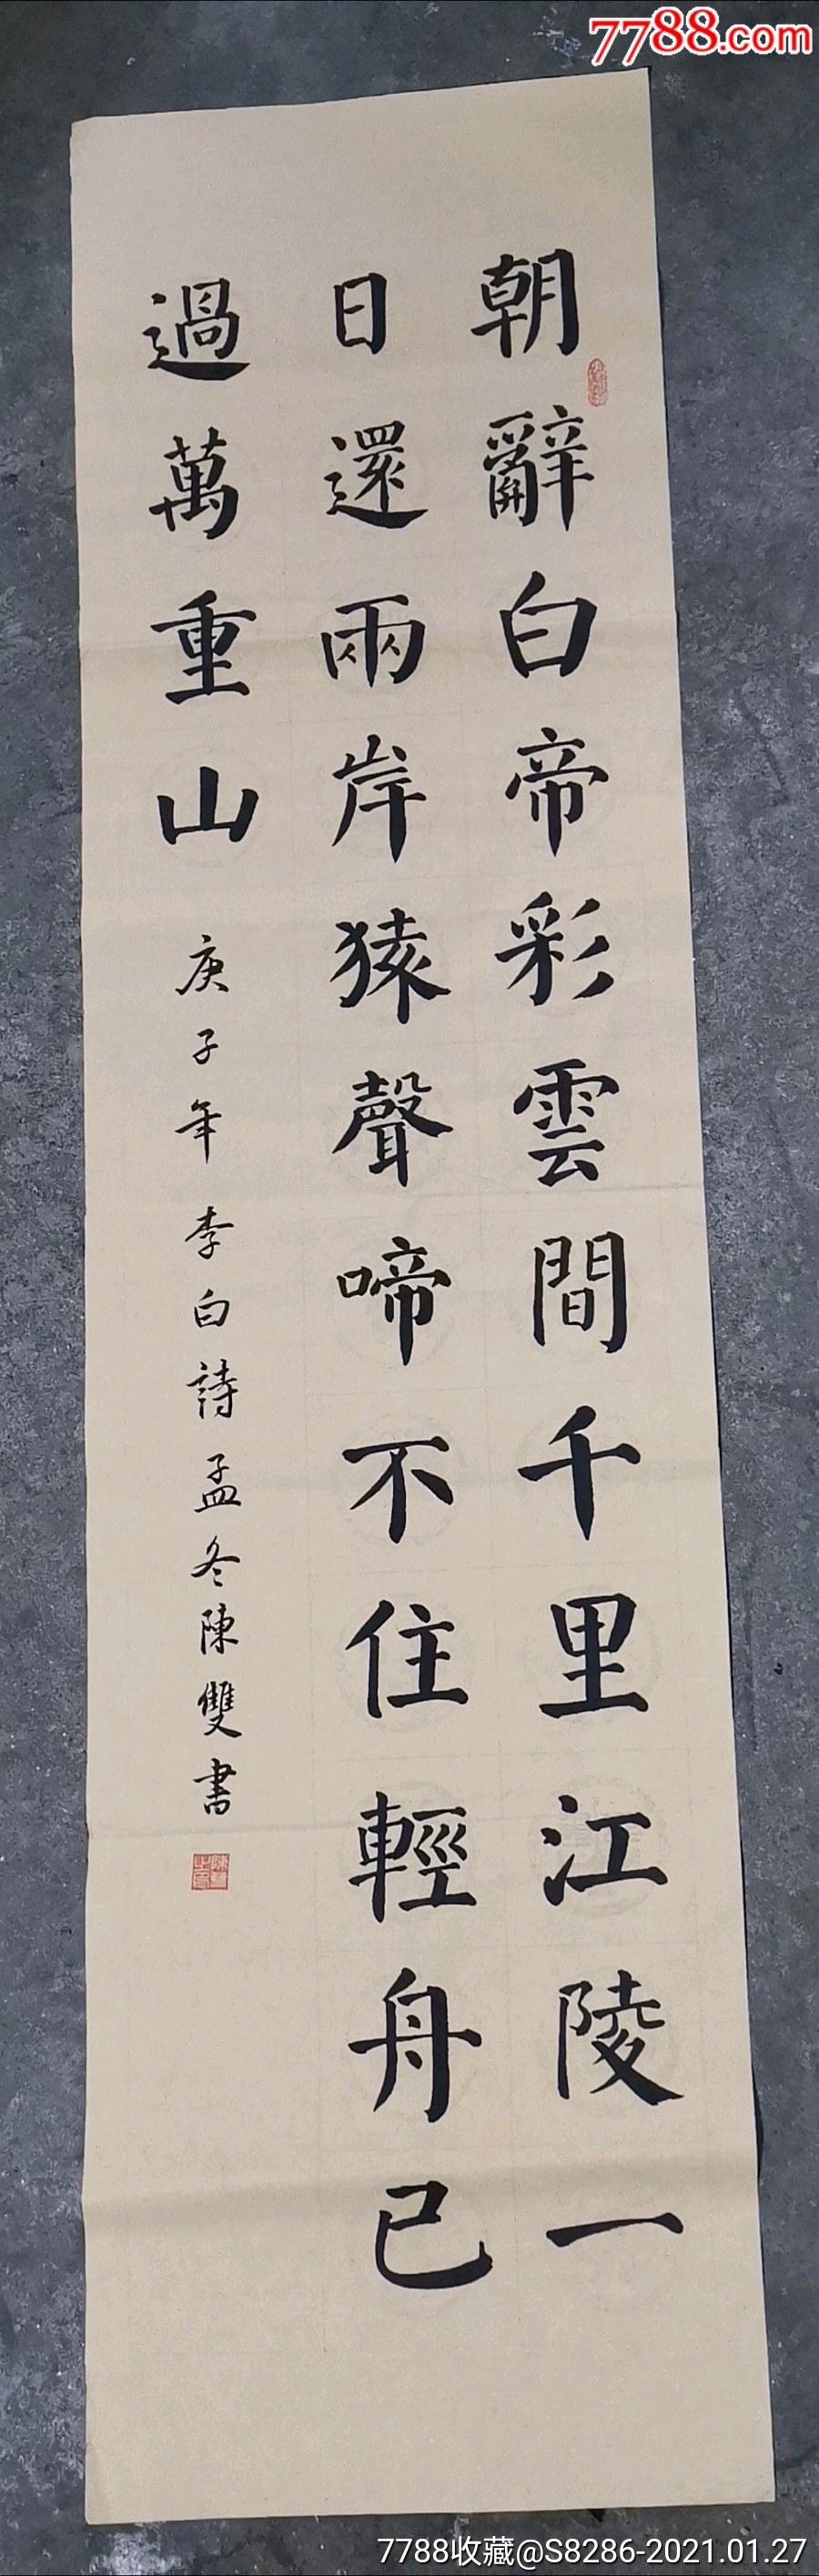 7788.com
朝辭白帝彩雲間千里江陵一
日還兩岸猿聲啼不住輕舟已
過萬重山
庚子年李白詩孟冬陳雙書
7788收藏@S8286-2021.01.27